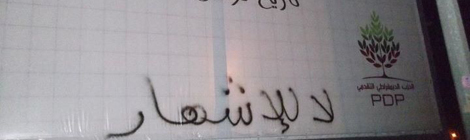 لا للإشهار
الحزب الديمقراطي التقدمي
PDP